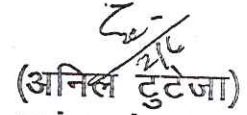 (अनिल टुटेजा)